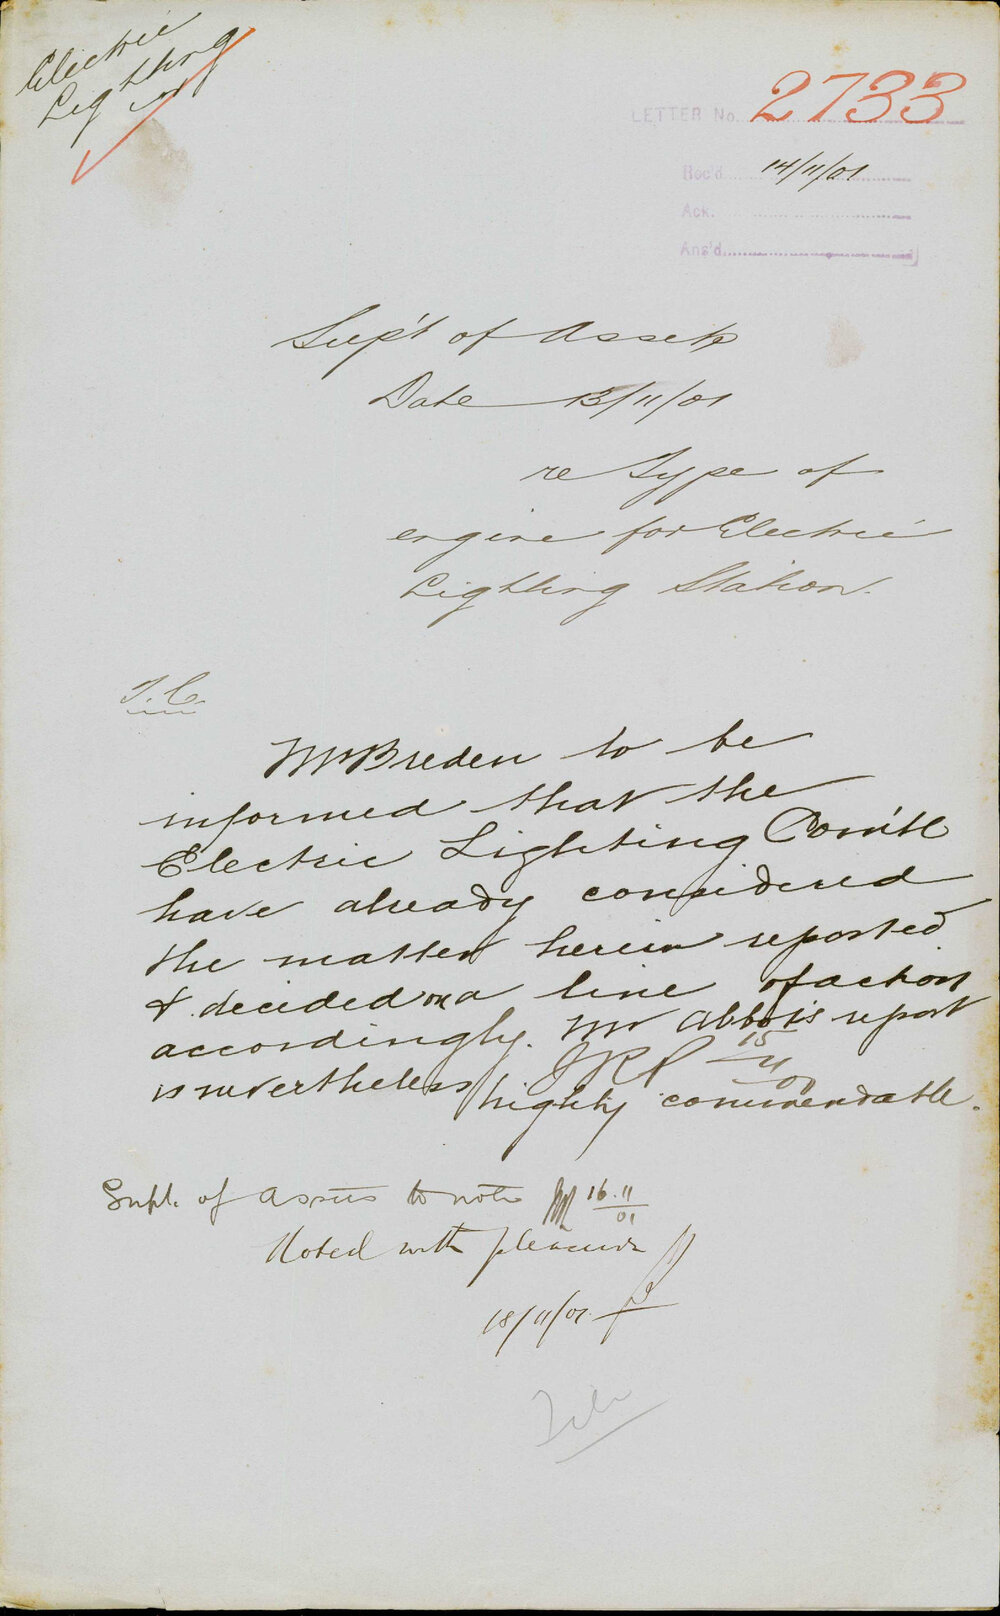 Electric
Lighting
LETTER No. 2733
Rec'd 14/11/01
Ack.
Ans'd
Sup't of Assets
Date 13/11/01
re Type of
engine for Electric
Lighting Station.
T.C.
Mr Breden to be
informed that the
Electric Lighting Com'tt
have already considered
the matter herein reported
& decided on a line of action
accordingly. Mr Abbots report
is nevertheless highly commendable.
15/11/01
Supt. of Assets to note 16.11/01
Noted with pleasure
18/11/01
File